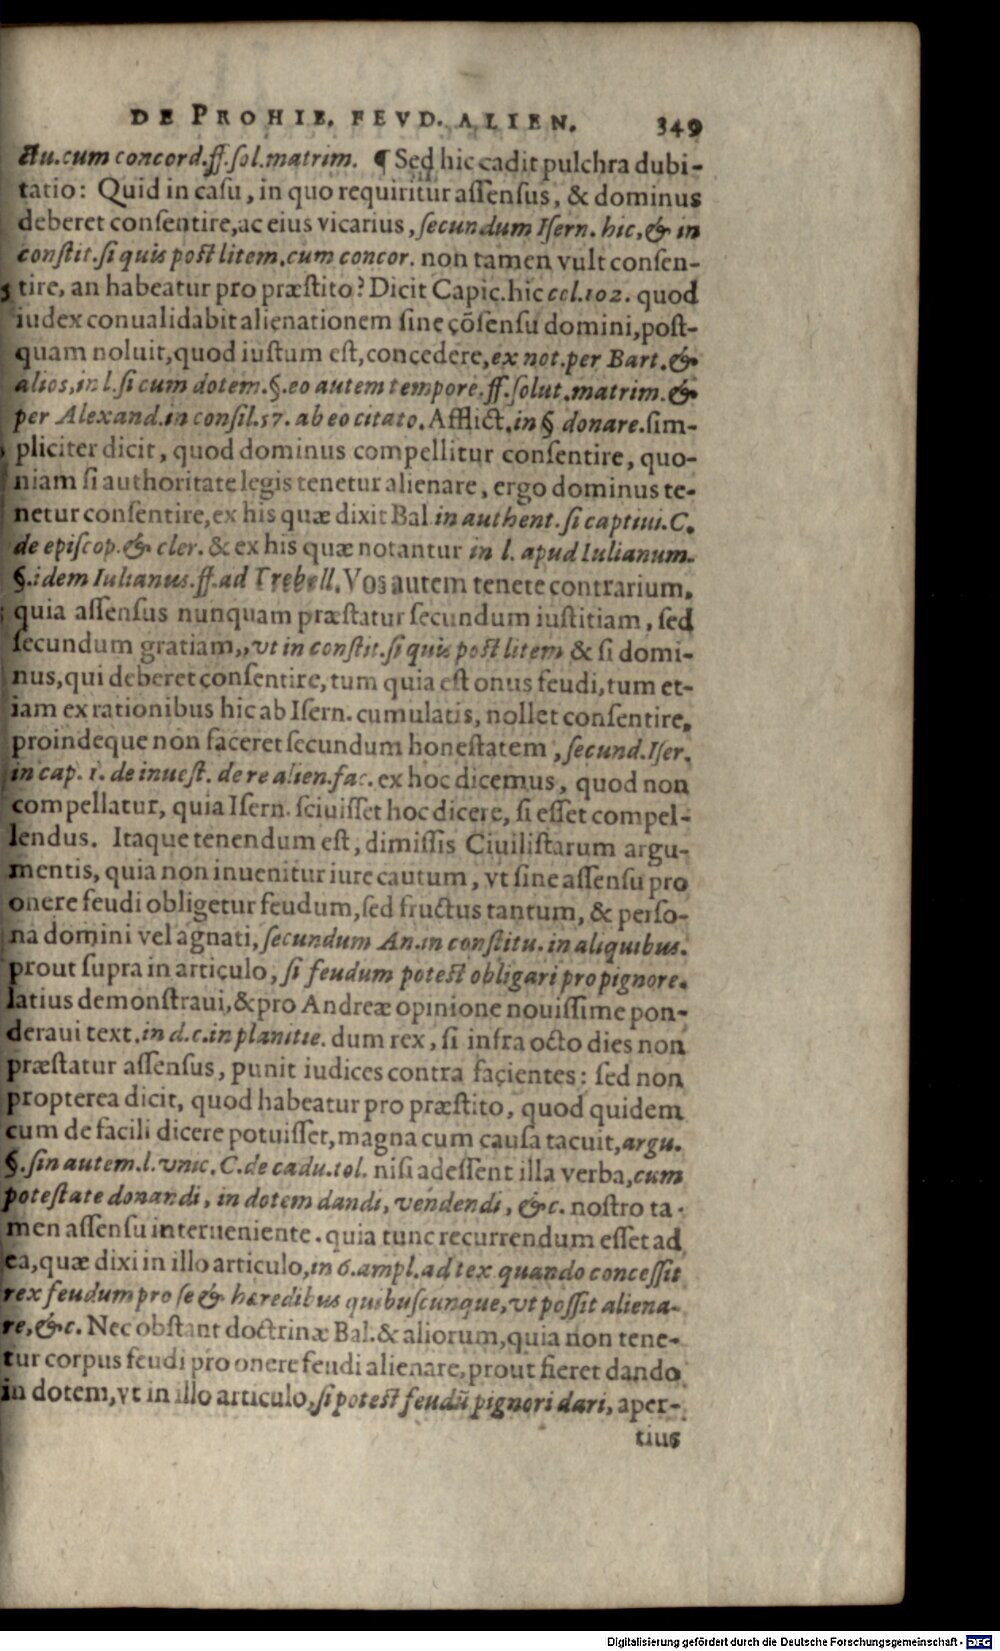 DE PROHIB. FEVD. ALIEN. 349
ctu.cum concord.ff.sol.matrim. ¶ Sed hic cadit pulchra dubi-
tatio: Quid in casu, in quo requiritur assensus, & dominus
deberet consentire, ac eius vicarius, secundum Isern. hic, & in
constit. si quis post litem. cum concor. non tamen vult consen-
tire, an habeatur pro præstito? Dicit Capic. hic ccl.102. quod
iudex conualidabit alienationem sine cõsensu domini, post-
quam noluit, quod iustum est, concedere, ex not. per Bart. &
alios, in l. si cum dotem. §. eo autem tempore. ff. solut. matrim. &
per Alexand. in consil. 57. ab eo citato. Afflict. in § donare. sim-
pliciter dicit, quod dominus compellitur consentire, quo-
niam si authoritate legis tenetur alienare, ergo dominus te-
netur consentire, ex his quæ dixit Bal in authent. si captiui. C.
de episcop. & cler. & ex his quæ notantur in l. apud Iulianum.
§. idem Iulianus. ff. ad Trebell. Vos autem tenete contrarium,
quia assensus nunquam præstatur secundum iustitiam, sed
secundum gratiam,, vt in constit. si quis post litem & si domi-
nus, qui deberet consentire, tum quia est onus feudi, tum et-
iam ex rationibus hic ab Isern. cumulatis, nollet consentire,
proindeque non faceret secundum honestatem, secund. Iser.
in cap. 1. de inuest. de re alien. fac. ex hoc dicemus, quod non
compellatur, quia Isern. sciuisset hoc dicere, si esset compel-
lendus. Itaque tenendum est, dimissis Ciuilistarum argu-
mentis, quia non inuenitur iure cautum, vt sine assensu pro
onere feudi obligetur feudum, sed fructus tantum, & perso-
na domini vel agnati, secundum An. in constitu. in aliquibus.
prout supra in articulo, si feudum potest obligari pro pignore.
latius demonstraui, & pro Andreæ opinione nouissime pon-
deraui text. in d. c. in planitie. dum rex, si infra octo dies non
præstatur assensus, punit iudices contra facientes: sed non
propterea dicit, quod habeatur pro præstito, quod quidem
cum de facili dicere potuisset, magna cum causa tacuit, argu.
§. sin autem. l. vnic. C. de cadu. tol. nisi adessent illa verba, cum
potestate donandi, in dotem dandi, vendendi, &c. nostro ta-
men assensu interueniente. quia tunc recurrendum esset ad
ea, quæ dixi in illo articulo, in 6. ampl. ad tex quando concessit
rex feudum pro se & hæredibus quibuscunque, vt possit aliena-
re, &c. Nec obstant doctrinæ Bal. & aliorum, quia non tene-
tur corpus feudi pro onere feudi alienare, prout fieret dando
in dotem, vt in illo articulo, si potest feudũ pignori dari, aper-
tius
Digitalisierung gefördert durch die Deutsche Forschungsgemeinschaft - DFG